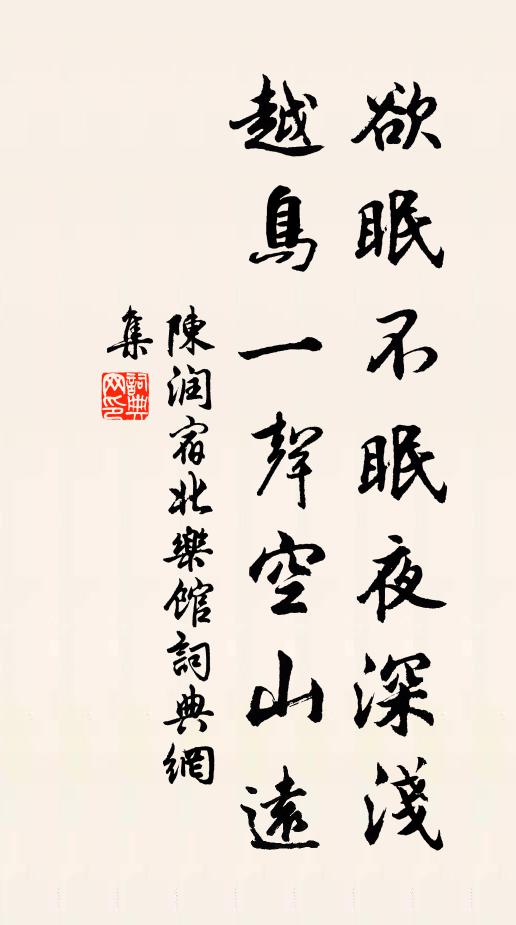 欲眠不眠夜深淺
越鳥一聲空山遠
陳潤宿北樂館詞典網
集
詞典网印